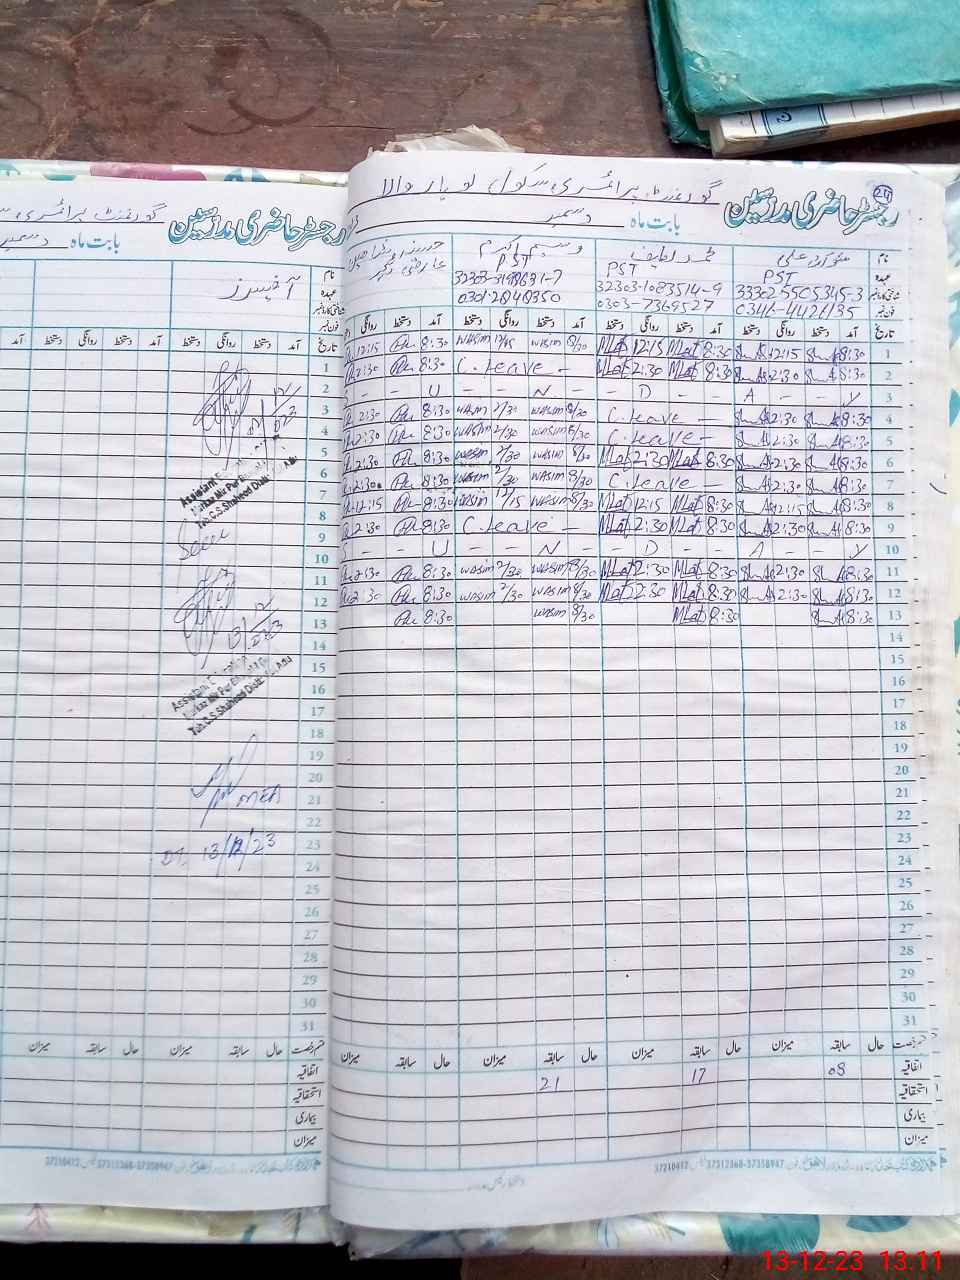 24
رجسٹر حاضری مدرسین
گورنمنٹ پرائمری سکول
بابت ماہ دسمبر
نام
عہدہ
شناختی کارڈ نمبر
فون نمبر
علی
PST
33302-5505345-3
محمد لطیف
PST
32303-1083514-9
0303-7369527
وسیم اکرم
PST
عارضی
تاریخ آمد دستخط روانگی دستخط آمد دستخط روانگی دستخط آمد دستخط روانگی دستخط آمد دستخط روانگی
1 8:30 12:15 8:30 MLat 12:15 MLat 8/30 WASIM 12/15 WASIM 8:30 12:15
2 8:30 2:30 8:30 MLat 2:30 MLat C. Leave - 8:30 2:30
3 Y - - A - - D - - N - - U - - S
4 8:30 2:30 C. Leave - 8/30 WASIM 2/30 WASIM 8:30 2:30
5 8:30 2:30 C. Leave - 8/30 WASIM 2/30 WASIM 8:30 2:30
6 8:30 2:30 8:30 MLat 2:30 MLat 8/30 WASIM 2/30 WASIM 8:30 2:30
7 8:30 2:30 C. Leave - 8/30 WASIM 2/30 WASIM 8:30 2:30
8 8:30 12:15 8:30 MLat 12:15 MLat 8/30 WASIM 12/15 WASIM 8:30 12:15
9 8:30 2:30 8:30 MLat 2:30 MLat C. Leave - 8:30 2:30
10 Y - - A - - D - - N - - U - - S
11 8:30 2:30 8:30 MLat 2:30 MLat 8/30 WASIM 2/30 WASIM 8:30 2:30
12 8:30 2:30 8:30 MLat 2:30 MLat 8/30 WASIM 2/30 WASIM 8:30 2:30
13 8:30 8:30 MLat 8/30 WASIM 8:30
14
15
16
17
18
19
20
21
22
23
24
25
26
27
28
29
30
31
حال سابقہ میزان حال سابقہ میزان حال سابقہ میزان حال سابقہ میزان
اتفاقیہ 08 17 21
استحقاقیہ
بیماری
میزان
37210412 37312368-37358947
رجسٹر حاضری مدرسین
گورنمنٹ پرائمری
بابت ماہ دسمبر
نام
عہدہ
شناختی کارڈ نمبر
فون نمبر
آفیسرز
تاریخ آمد دستخط روانگی دستخط آمد دستخط روانگی دستخط آمد
1
2
3
4
5
6
7
8
9
10
11
12
13
14
15
16
17
18
19
20
21
22
23
24
25
26
27
28
29
30
31
Seen
MEA
Dt, 13/12/23
قسم رخصت حال سابقہ میزان حال سابقہ میزان
اتفاقیہ
استحقاقیہ
بیماری
میزان
37210412 37312368-37358947
13-12-23 13:11